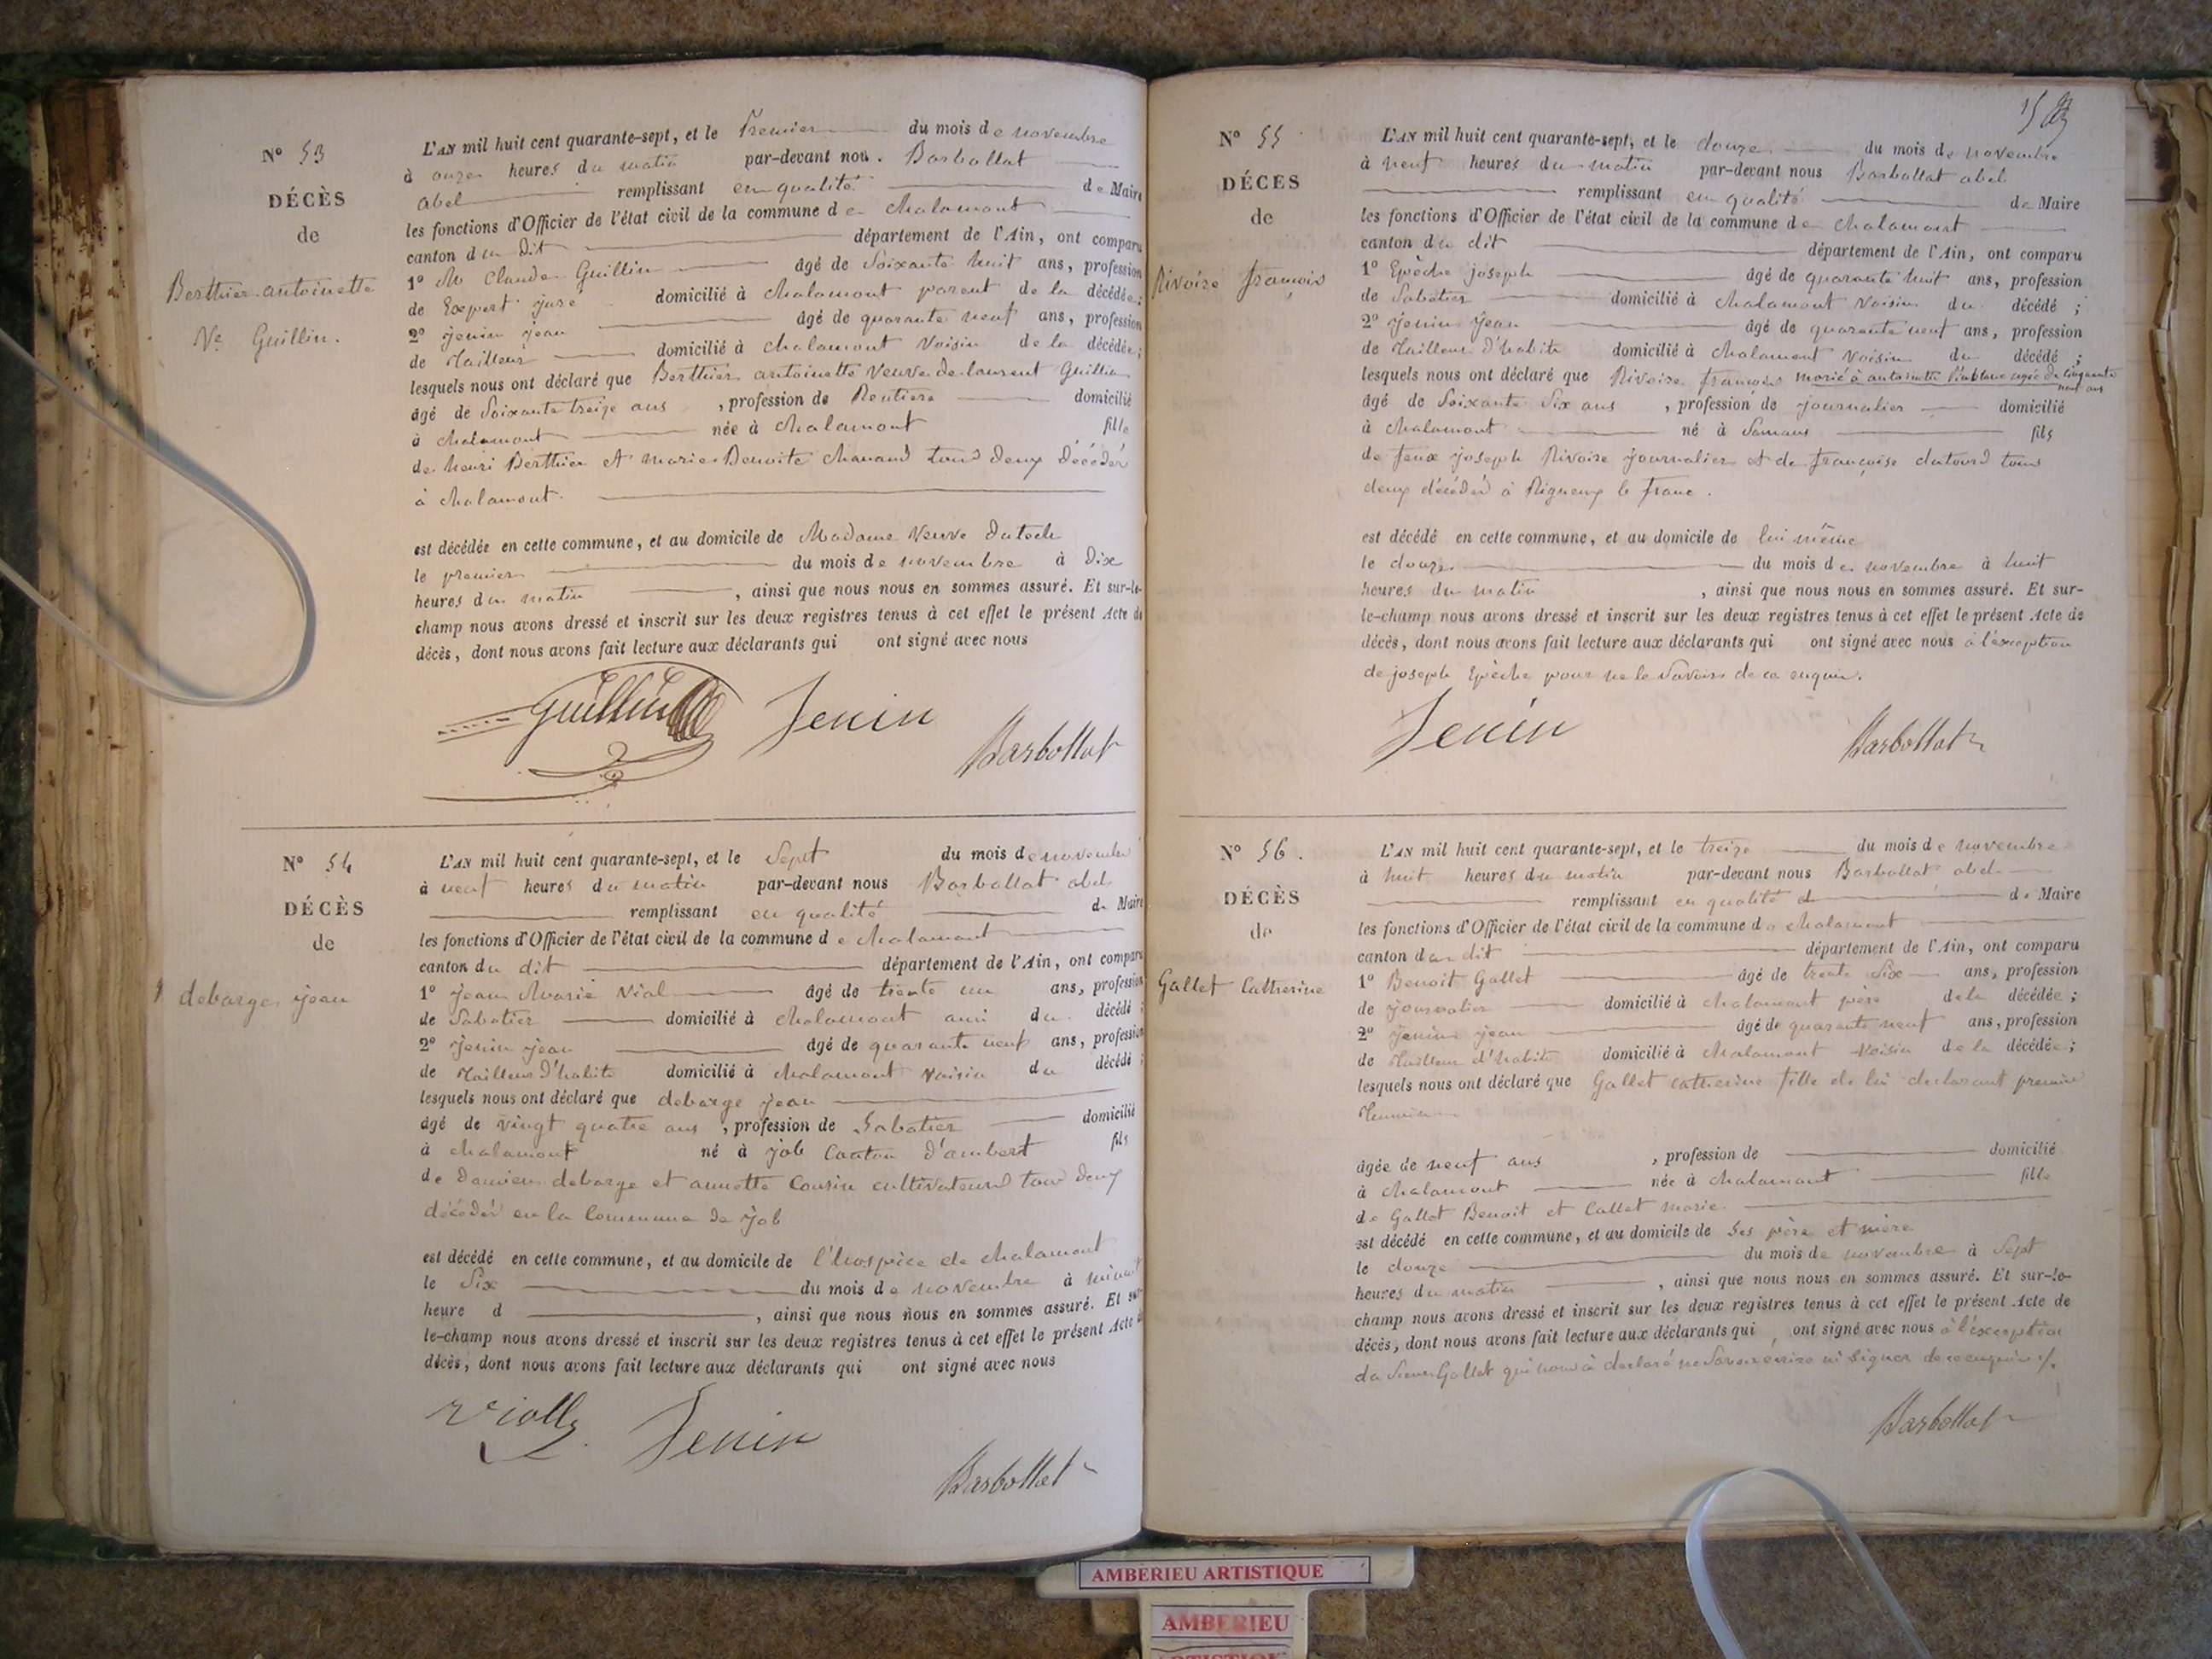 N° 53
DÉCÈS
de
Berthier antoinette
Ve Guillin.
L'AN mil huit cent quarante-sept, et le Premier du mois de novembre
à onze heures du matin par-devant nou. Barbollat
abel remplissant en qualité de Maire
les fonctions d'Officier de l'état civil de la commune de chalamont
canton du Dit département de l'Ain, ont comparu
1° M Claude Guillin âgé de Soixante huit ans, profession
de Expert juré domicilié à chalamont parent de la décédée;
2° jenin jean âgé de quarante neuf ans, profession
de Tailleur domicilié à chalamont Voisin de la décédée;
lesquels nous ont déclaré que Berthier antoinette Veuve de laurent Guillin
âgé de Soixante treize ans, profession de Rentiere domicilié
à chalamont née à chalamont fille
de henri Berthier et marie Benoite chanand tous deux décédés
à chalamont.
est décédée en cette commune, et au domicile de Madame Veuve Dutech
le premier du mois de novembre à Dix
heures du matin, ainsi que nous nous en sommes assuré. Et sur-le-
champ nous avons dressé et inscrit sur les deux registres tenus à cet effet le présent Acte de
décès, dont nous avons fait lecture aux déclarants qui ont signé avec nous
Guillin Jenin
Barbollat
N° 54
DÉCÈS
de
debarge jean
L'AN mil huit cent quarante-sept, et le Sept du mois de novembre
à neuf heures du matin par-devant nous Barbollat abel
remplissant en qualité de Maire
les fonctions d'Officier de l'état civil de la commune de chalamont
canton du dit département de l'Ain, ont comparu
1° jean Marie Vial âgé de trente un ans, profession
de Sabotier domicilié à chalamont ami du décédé;
2° jenin jean âgé de quarante neuf ans, profession
de Tailleur d'habits domicilié à chalamont Voisin du décédé;
lesquels nous ont déclaré que debarge jean
âgé de vingt quatre ans, profession de Sabotier domicilié
à chalamont né à job Canton d'ambert fils
de Damien debarge et annette Cousin cultivateurs tous deux
décédés en la Commune de job
est décédé en cette commune, et au domicile de l'hospice de chalamont
le Six du mois de novembre à minuit
heure d, ainsi que nous nous en sommes assuré. Et sur-
le-champ nous avons dressé et inscrit sur les deux registres tenus à cet effet le présent Acte de
décès, dont nous avons fait lecture aux déclarants qui ont signé avec nous
Jenin
Barbollat
N° 55
DÉCES
de
Rivoire françois
L'AN mil huit cent quarante-sept, et le douze du mois de novembre
à neuf heures du matin par-devant nous Barbollat abel
remplissant en qualité de Maire
les fonctions d'Officier de l'état civil de la commune de chalamont
canton du dit département de l'Ain, ont comparu
1° Epèche joseph âgé de quarante huit ans, profession
de Sabotier domicilié à chalamont Voisin du décédé;
2° jenin jean âgé de quarante neuf ans, profession
de Tailleur d'habits domicilié à chalamont Voisin du décédé;
lesquels nous ont déclaré que Rivoire françois marié à antoinette agée de Cinquante
neuf ans
âgé de Soixante Six ans, profession de journalier domicilié
à chalamont né à Samans fils
de feux joseph Rivoire journalier et de françoise dutourd tous
deux décédés à Rigneux le franc.
est décédé en cette commune, et au domicile de lui même
le douze du mois de novembre à huit
heures du matin, ainsi que nous nous en sommes assuré. Et sur-
le-champ nous avons dressé et inscrit sur les deux registres tenus à cet effet le présent Acte de
décès, dont nous avons fait lecture aux déclarants qui ont signé avec nous à l'exception
de joseph Epèche pour ne le Savoir de ce enquis.
Jenin Barbollat
N° 56.
DÉCÈS
de
Gallet Catherine
L'AN mil huit cent quarante-sept, et le treize du mois de novembre
à huit heures du matin par-devant nous Barbollat abel
remplissant en qualité d de Maire
les fonctions d'Officier de l'état civil de la commune de chalamont
canton du dit département de l'Ain, ont comparu
1° Benoit Gallet âgé de trente Six ans, profession
de journalier domicilié à chalamont père de la décédée;
2° jenin jean âgé de quarante neuf ans, profession
de Tailleur d'habits domicilié à chalamont Voisin de la décédée;
lesquels nous ont déclaré que Gallet catherine fille de lui declarant premier
âgée de neuf ans, profession de domicilié
à chalamont née à chalamont fille
de Gallet Benoit et Callet marie
est décédé en cette commune, et au domicile de Ses père et mère
le douze du mois de novembre à Sept
heures du matin, ainsi que nous nous en sommes assuré. Et sur-le-
champ nous avons dressé et inscrit sur les deux registres tenus à cet effet le présent Acte de
décès, dont nous avons fait lecture aux déclarants qui ont signé avec nous à l'exception
du Sieur Gallet qui nous à declaré ne Savoir écrire ni Signer de ce enquis
Barbollat
AMBERIEU ARTISTIQUE
AMBERIEU
ARTISTIQUE